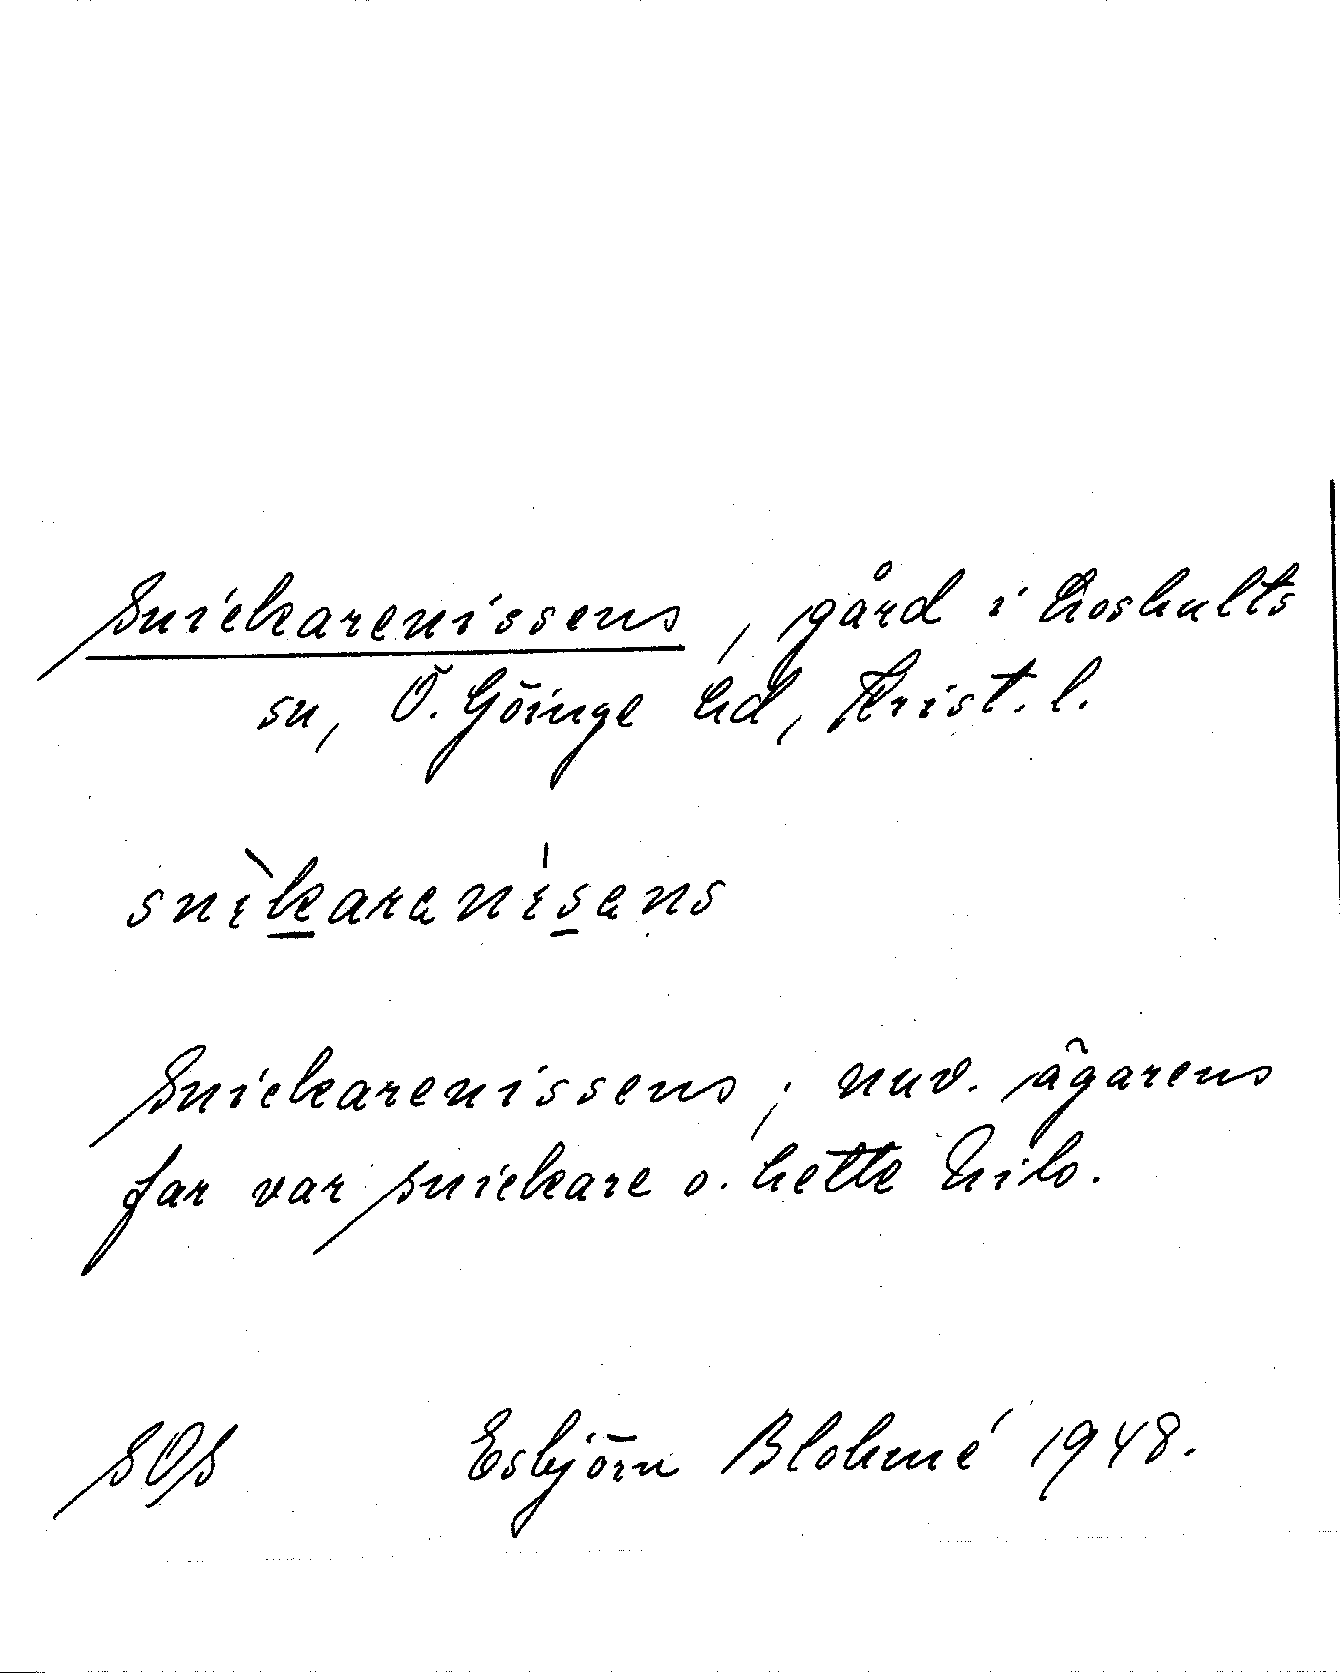 Snickarenissens, gård i Loshults
sn, Ö. Göinge hd, Krist. l.
snìkarenísens
Snickarenissens; nuv. ägarens
far var snickare o. hette Nils.
SOS Esbjörn Blohmé 1948.